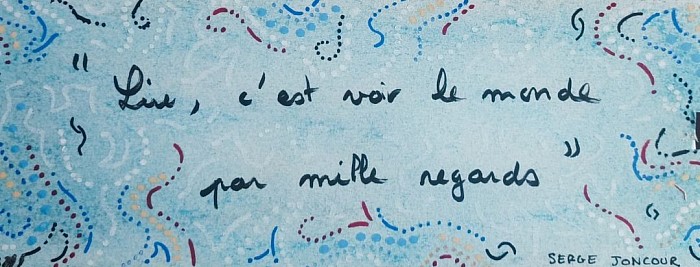 " Lire, c'est voir le monde
par mille regards "
SERGE JONCOUR